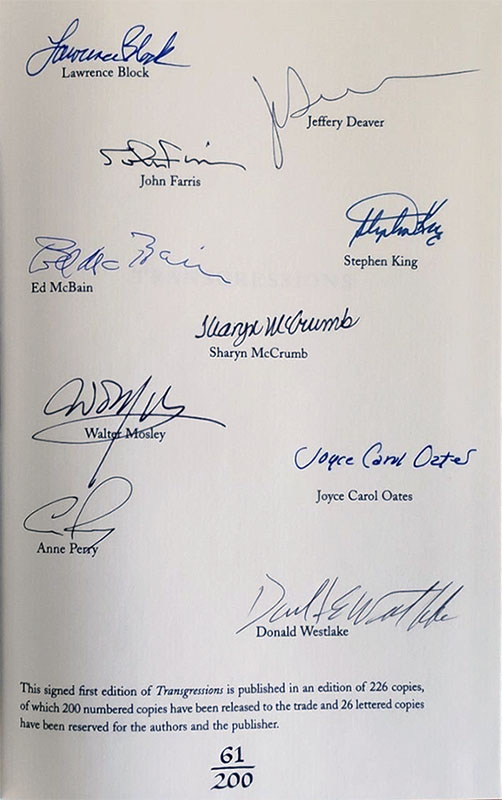 Lawrence Block
Lawrence Block
Jeffery Deaver
John Farris
John Farris
Stephen King
Stephen King
Ed McBain
Ed McBain
TRANSGRESSIONS
Sharyn McCrumb
Sharyn McCrumb
Walter Mosley
Joyce Carol Oates
Joyce Carol Oates
Anne Perry
Donald E Westlake
Donald Westlake
This signed first edition of Transgressions is published in an edition of 226 copies,
of which 200 numbered copies have been released to the trade and 26 lettered copies
have been reserved for the authors and the publisher.
61
200